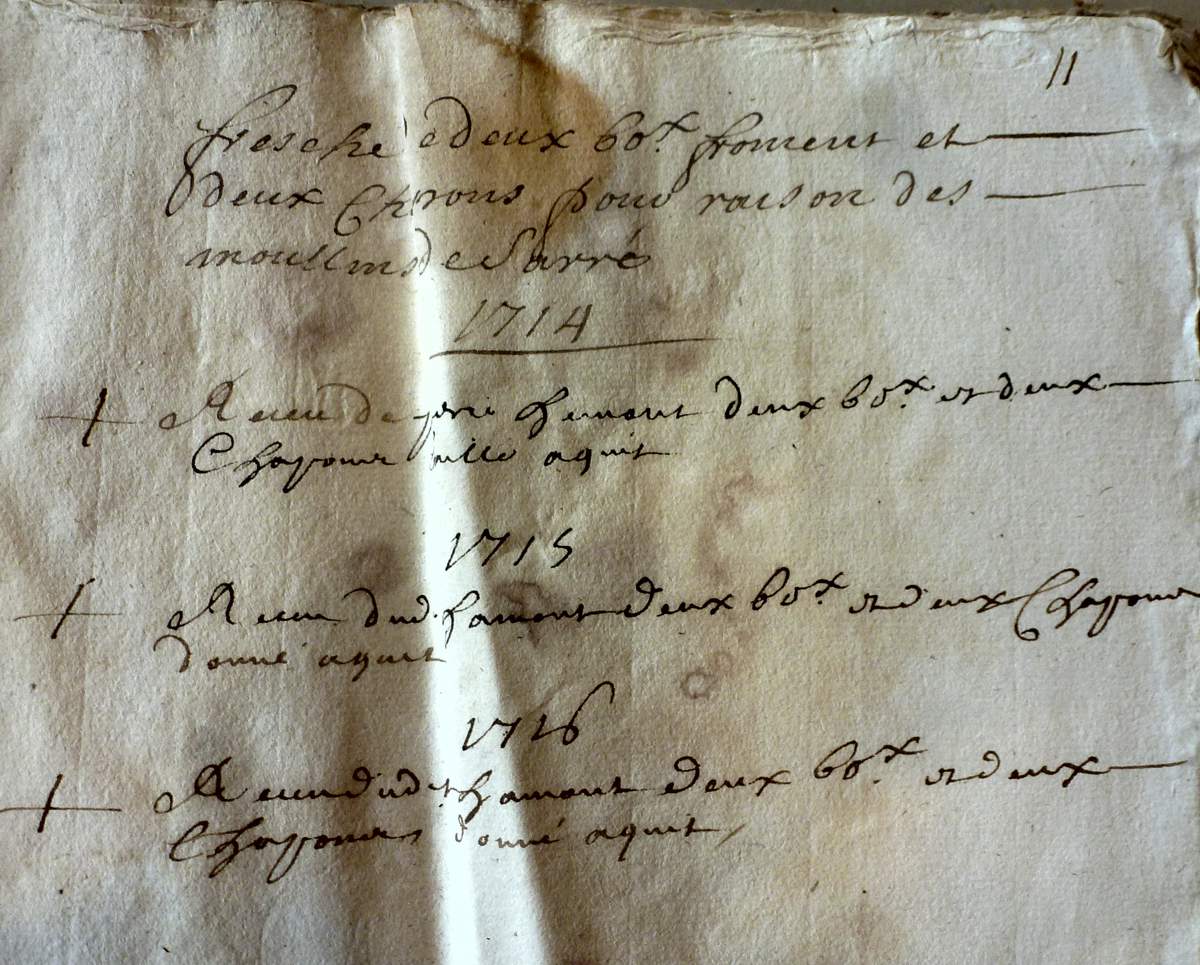 11
fresche de deux box. froment et
deux Chapons pour raison des
moullins de Sarré
1714
+ Receu de hamont deux box. et deux
Chapons aquit
1715
+ Receu dud. hamont deux box. et deux Chapons
donné aquit
1716
+ Receu dudt hamont deux box. et deux
Chapons donné aquit